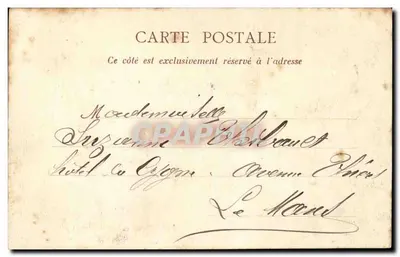 CARTE POSTALE
Ce côté est exclusivement réservé à l'adresse
Mademoiselle
Suzanne
hôtel du Cygne. Avenue Thiers
Le Mans